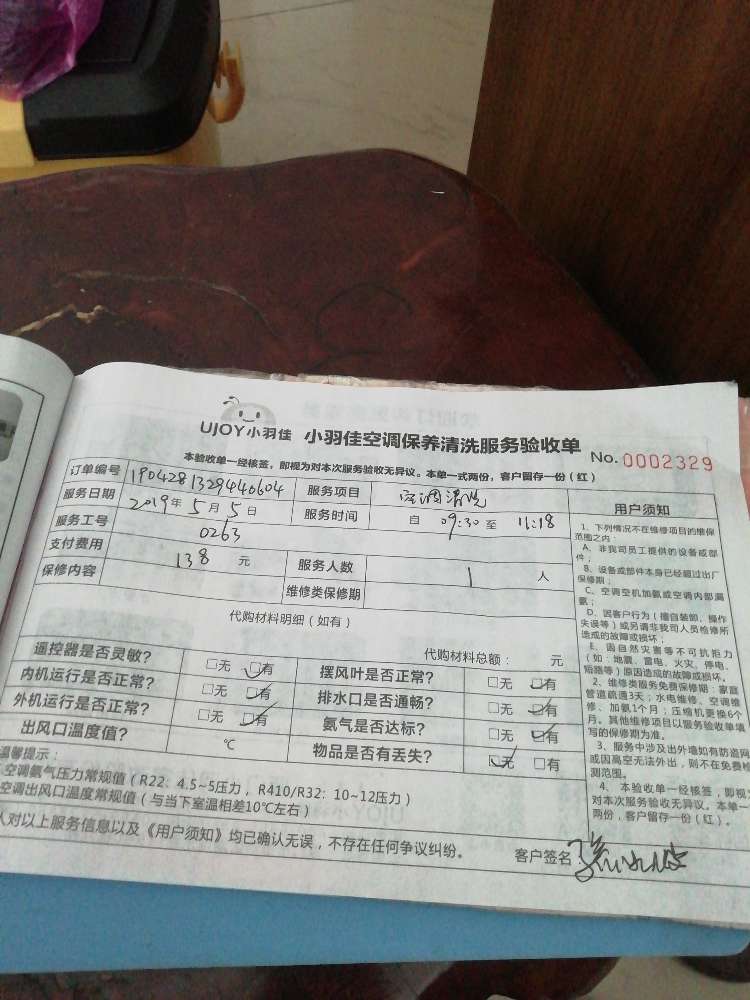 UJOY小羽佳 小羽佳空调保养清洗服务验收单 No.0002329
本验收单一经核签，即视为对本次服务验收无异议。本单一式两份，客户留存一份（红）
订单编号 1904281329446604 服务项目 空调清洗
服务日期 2019年5月5日 服务时间 自 09:30 至 11:18
服务工号 0263
支付费用 138 元 服务人数 1 人
保修内容 维修类保修期
代购材料明细（如有）
代购材料总额： 元
遥控器是否灵敏？ □无 □有 摆风叶是否正常？ □无 □有
内机运行是否正常？ □无 □有 排水口是否通畅？ □无 □有
外机运行是否正常？ □无 □有 氨气是否达标？ □无 □有
出风口温度值？ ℃ 物品是否有丢失？ □无 □有
温馨提示：
空调氨气压力常规值（R22：4.5~5压力，R410/R32：10~12压力）
空调出风口温度常规值（与当下室温相差10℃左右）
人对以上服务信息以及《用户须知》均已确认无误，不存在任何争议纠纷。 客户签名：
用户须知
1、下列情况不在维修项目的维保
范围之内：
A、非我司员工提供的设备或部
件；
B、设备或部件本身已经超过出厂
保修期；
C、空调空机加氨或空调内部漏
氨；
D、因客户行为（擅自装卸、操作
失误等）或另请非我司人员检修所
造成的故障或损坏；
E、因自然灾害等不可抗拒力
（如：地震、雷电、火灾、停电、
短路等）原因造成的故障或损坏。
2、维修类服务免费保修期：家庭
管道疏通3天；水电维修、空调维
修、加氨1个月；压缩机更换6个
月。其他维修项目以服务验收单填
写的保修期为准。
3、服务中涉及出外墙如有防盗网
或因高空无法外出，则不在免费检
测范围。
4、本验收单一经核签，即视为
对本次服务验收无异议。本单一
两份，客户留存一份（红）。